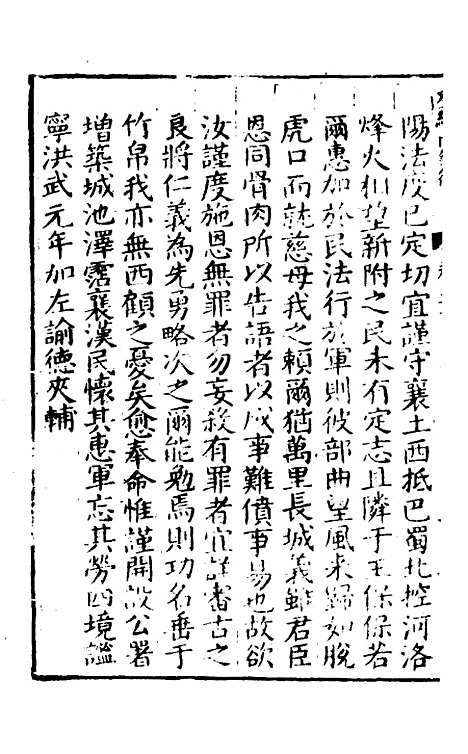 陽法度已定切宜謹守襄土西抵巴蜀北控河洛
烽火相望新附之民未有定志且隣于王保保若
爾惠加於民法行於軍則彼部曲望風來歸如脫
虎口而就慈母我之賴爾猶萬里長城義雖君臣
恩同骨肉所以告語者以成事難僨事易也故欲
汝謹度施恩無罪者勿妄殺有罪者宜詳審古之
良將仁義為先勇略次之爾能勉焉則功名垂于
竹帛我亦無西顧之憂矣愈奉命惟謹開設公署
增築城池澤霑襄漢民懷其惠軍忘其勞四境謐
寧洪武元年加左諭德夾輔